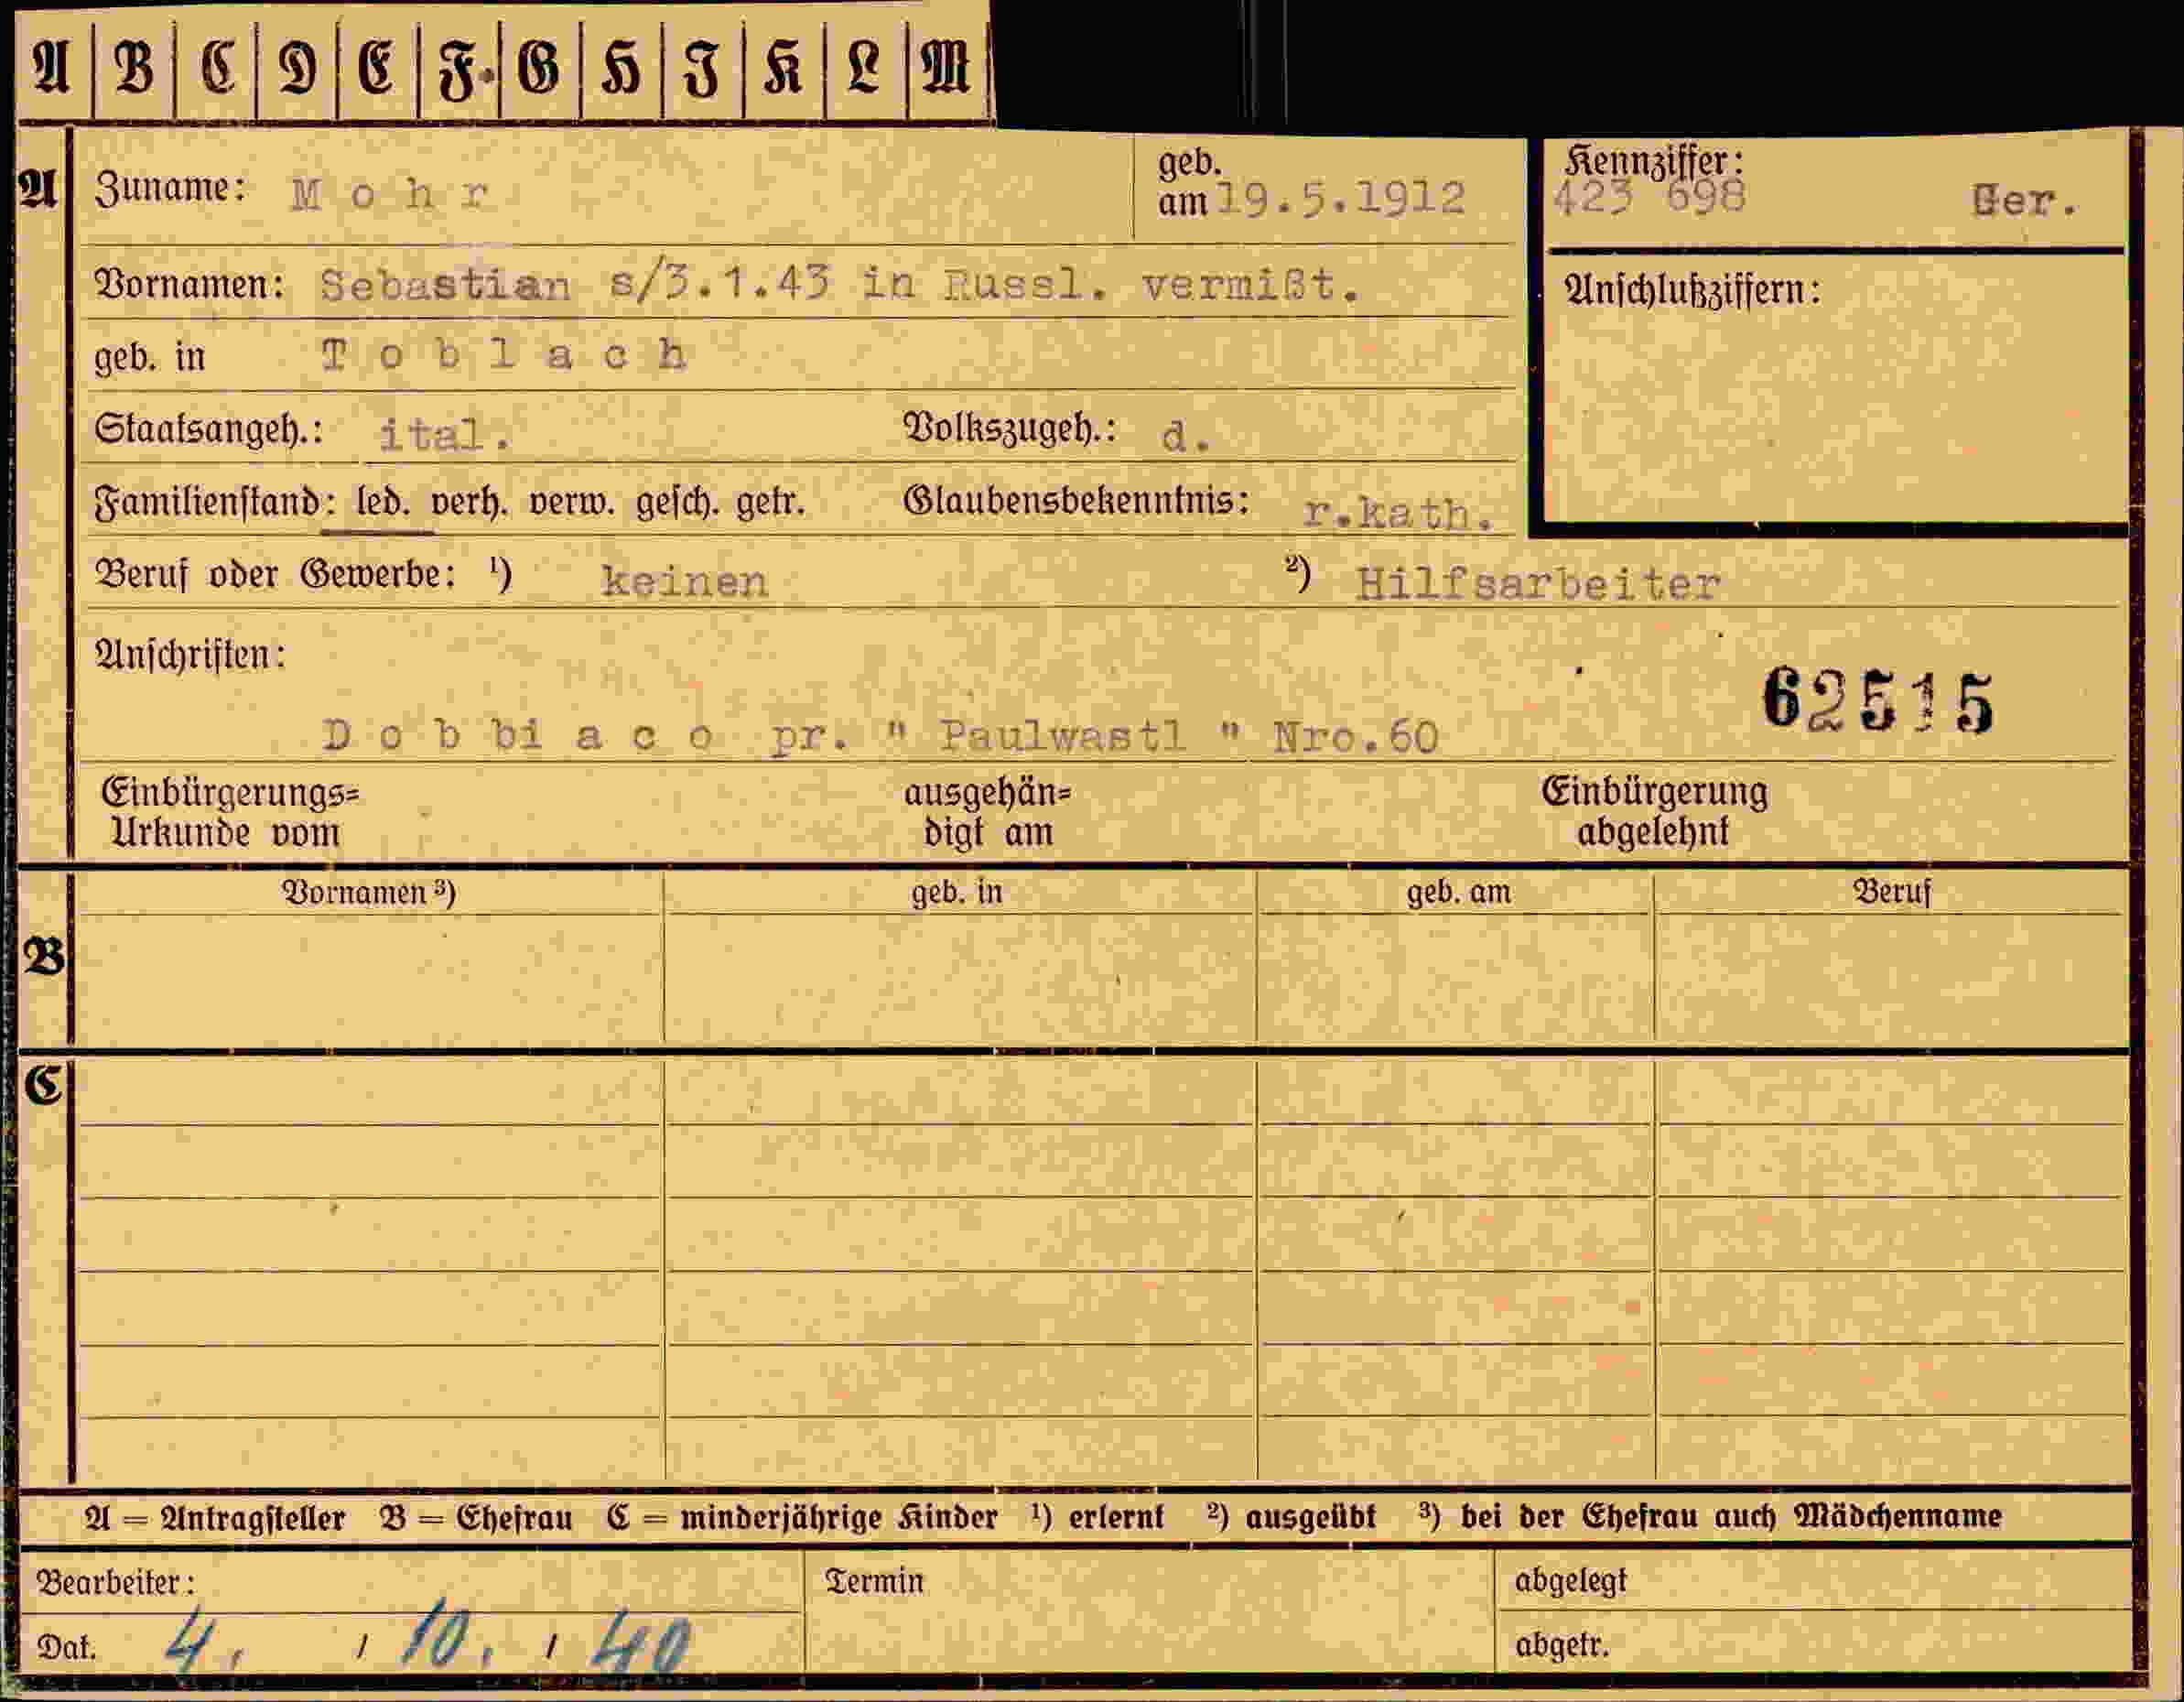 A B C D E F. G H I K L M
A Zuname: M o h r geb. am 19.5.1912 Kennziffer: 423 698 Ger.
Vornamen: Sebastian s/3.1.43 in Russl. vermißt. Anschlußziffern:
geb. in T o b l a c h
Staatsangeh.: ital. Volkszugeh.: d.
Familienstand: led. verh. verw. gesch. getr. Glaubensbekenntnis: r.kath.
Beruf oder Gewerbe: ¹) keinen ²) Hilfsarbeiter
Anschriften:
62515
D o b bi a c o pr. " Paulwastl " Nro.60
Einbürgerungs= ausgehän= Einbürgerung
Urkunde vom digt am abgelehnt
Vornamen ³) geb. in geb. am Beruf
B
C
A = Antragsteller B = Ehefrau C = minderjährige Kinder ¹) erlernt ²) ausgeübt ³) bei der Ehefrau auch Mädchenname
Bearbeiter: Termin abgelegt
Dat. 4. / 10. / 40 abgetr.